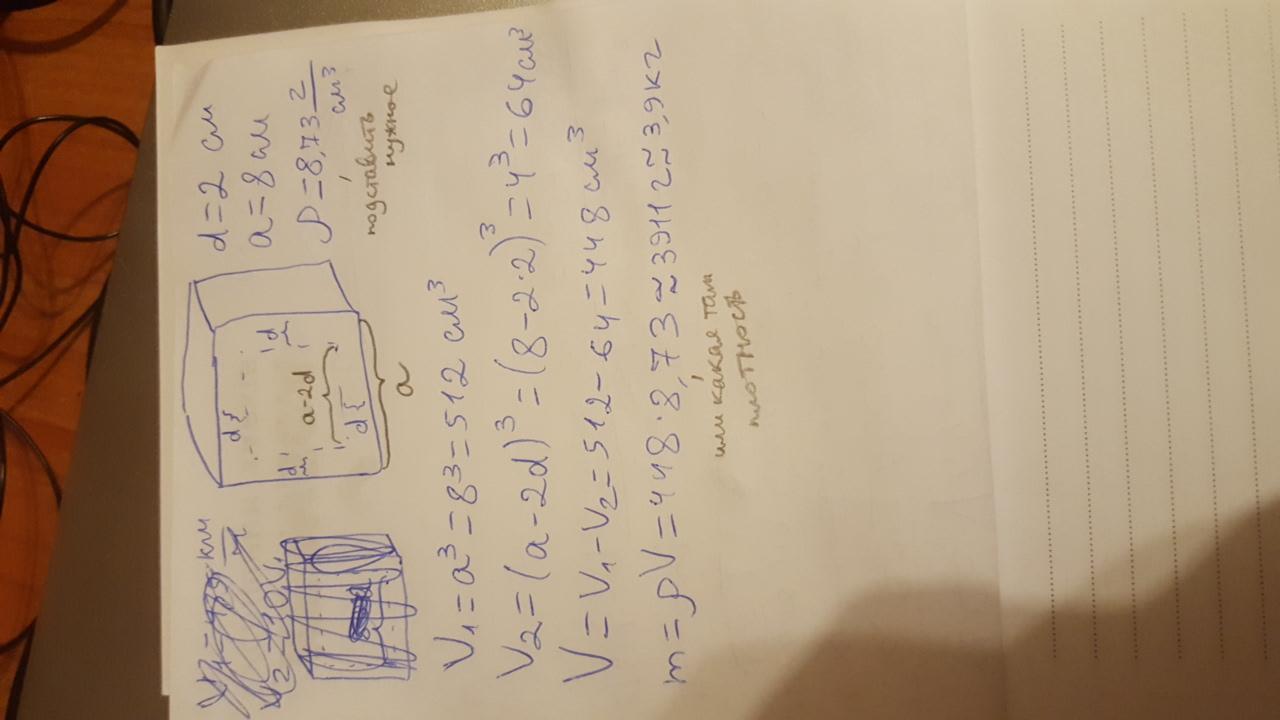 d=2 см
a=8см
ρ=8,73 г/см³
подставить
нужное
d{
d
a-2d
d
d{
a
V₁=a³=8³=512 см³
V₂=(a-2d)³=(8-2·2)³=4³=64см³
V=V₁-V₂=512-64=448см³
m=ρV=448·8,73≈3911г≈3,9кг
или какая там
плотность